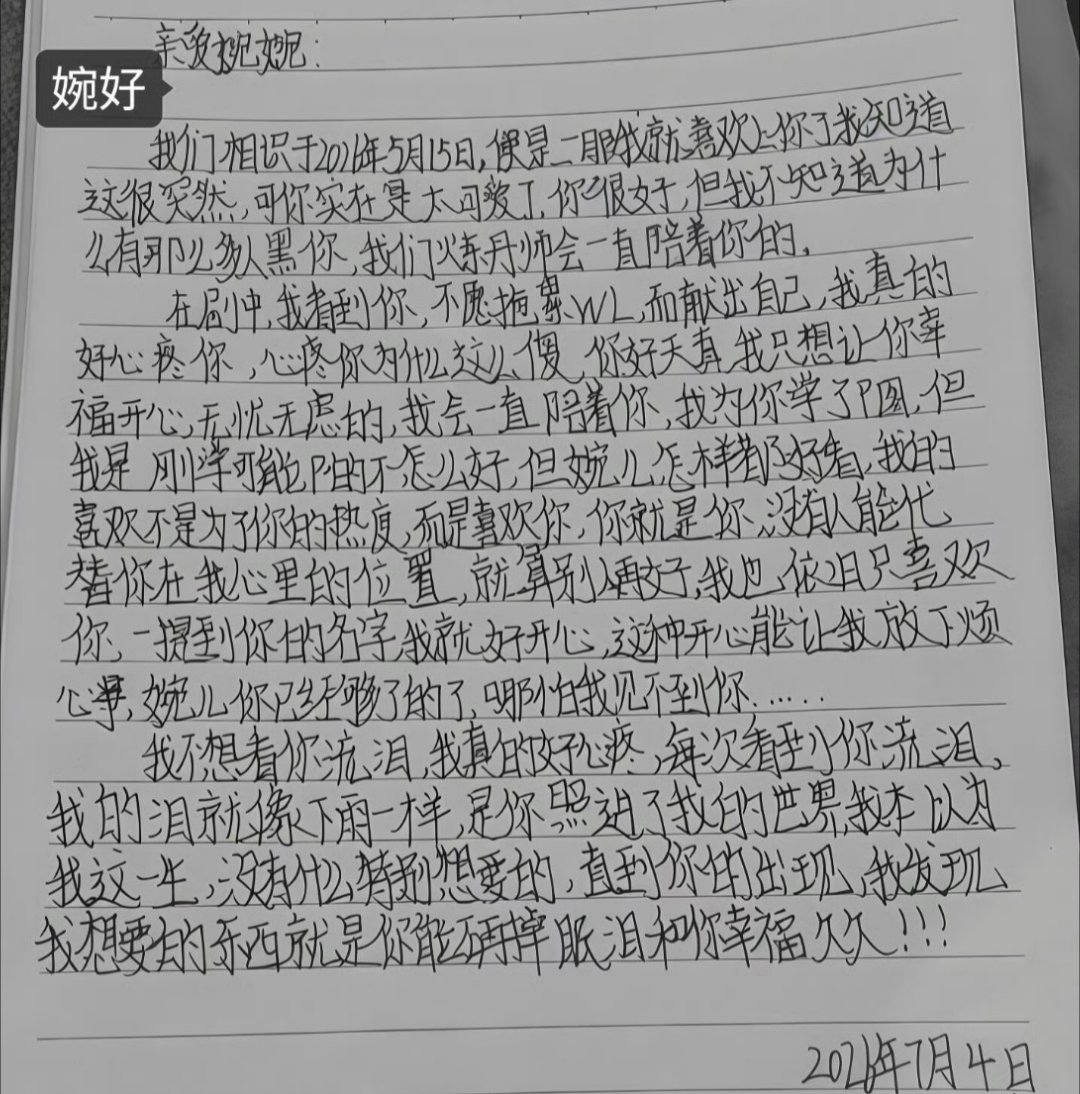 亲爱婉婉:
婉好
我们相识于2026年5月15日,便是二那我就喜欢上你了我知道
这很突然,可你实在是太可爱了,你很好,但我不知道为什
么有那么多人黑你,我们炼丹师会一直陪着你的。
在剧中,我看到你,不愿拖累WL,而献出自己,我真的
好心疼你,心疼你为什么这么傻,你好天真,我只想让你幸
福开心,无忧无虑的,我会一直陪着你,我为你学了P图,但
我是刚学可能P的不怎么好,但婉儿怎样都好看,我的
喜欢不是为了你的热度,而是喜欢你,你就是你,没有人能代
替你在我心里的位置,就算别人再好,我也依旧只喜欢
你,一提到你的名字,我就好开心,这种开心能让我放下烦
心事,婉儿你已经够了的了,哪怕我见不到你……
我不想看你流泪,我真的好心疼,每次看到你流泪,
我的泪就像下雨一样,是你照进了我的世界,我本以为
我这一生,没有什么特别想要的,直到你的出现,我发现
我想要的东西就是你能不再掉眼泪和你幸福久久!!!
2026年7月4日